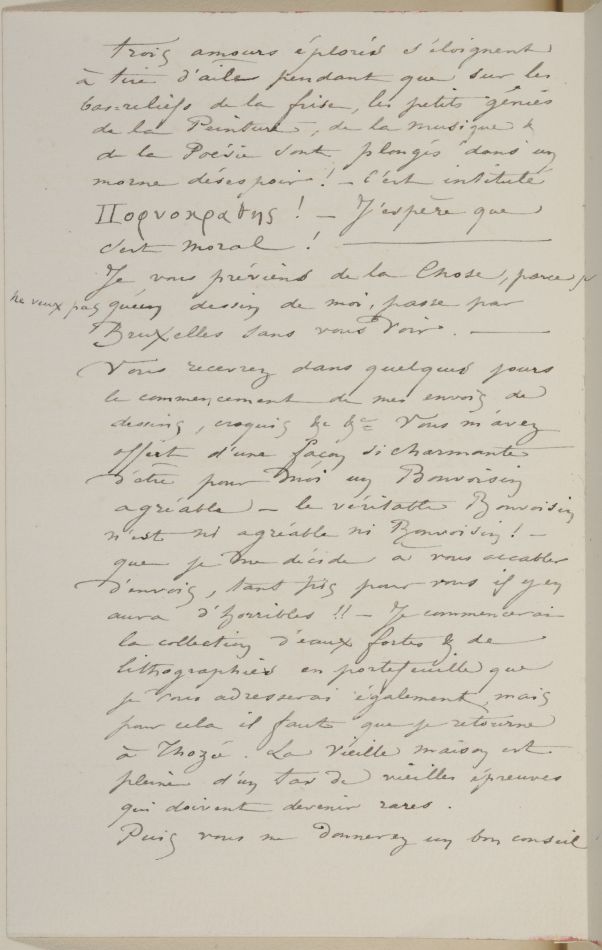 trois amours éplorés s'éloignent
à tire d'aile pendant que sur les
bas-reliefs de la frise, les petits génies
de la Peinture, de la musique &
de la Poésie sont plongés dans un
morne désespoir ! – C'est intitulé
Πορνοκράτης ! – J'espère que
c'est moral !
Je vous préviens de la Chose, parce que je
ne veux pas qu'un dessin de moi, passe par
Bruxelles sans vous voir.
Vous recevrez dans quelques jours
le commencement de mes envois de
dessins, croquis &c &c Vous m'avez
offert d'une façon si charmante
d'être pour moi un Bonvoisin
agréable – le véritable Bonvoisin
n'est ni agréable ni Bonvoisin ! –
que je me décide à vous accabler
d'envois, tant pis pour vous il y en
aura d'horribles !! – Je commencerai
la collection d'eaux fortes & de
lithographies en portefeuille que
je vous adresserai également, mais
pour cela il faut que je retourne
à Thozée. La Vieille maison est
pleine d'un tas de vieilles épreuves
qui doivent devenir rares.
Puis vous me donnerez un bon conseil